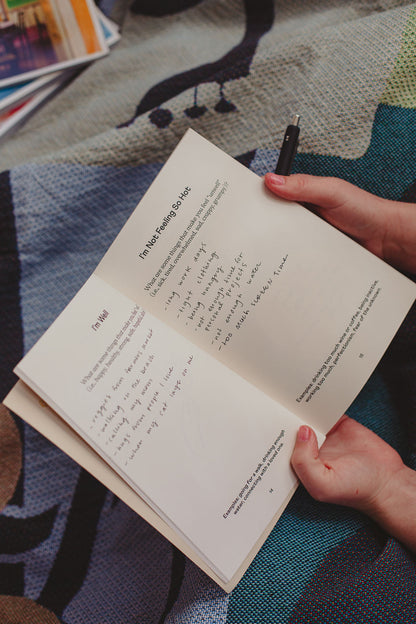 I'm Well
What are some things that make you feel "
(i.e., happy, healthy, strong, silly, hopeful,
- veggies from farmers market
- walking in the bush
- calling my mum
- hugs from people I love
- when my cat lays on me
Examples: going for a walk, drinking enough
water, connecting with a loved one
14
I'm Not Feeling So Hot
What are some things that make you feel "unwell"
(i.e., sick, tired, overwhelmed, sad, crappy, grumpy)?
- long work days
- tight clothing
- being hungry
- not enough time for
personal projects
- not enough water
- too much screen time
Examples: drinking too much wine or coffee, being inactive,
working too much, perfectionism, fear of the unknown.
15